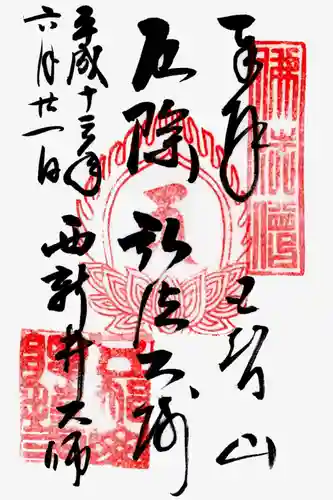 奉拝
五智山
厄除
弘法大師
平成十三年
六月廿一日
西新井大師